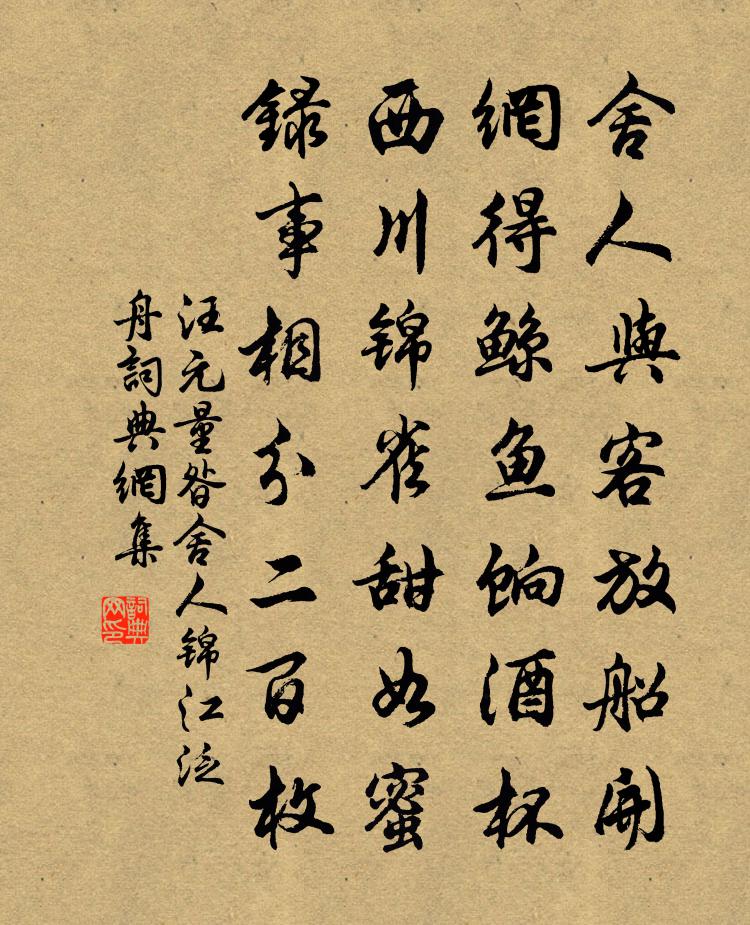 舍人與客放船開
網得鯨魚餉酒杯
西川錦雀甜如蜜
錄事相分二百枚
汪元量昝舍人錦江泛
舟詞典網集
詞典网印